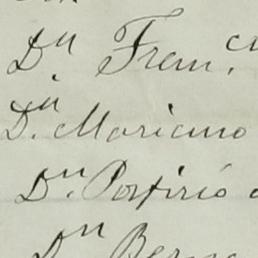 Dn. Fran.co
Dn. Mariano
Dn. Porfirio
Dn Berna